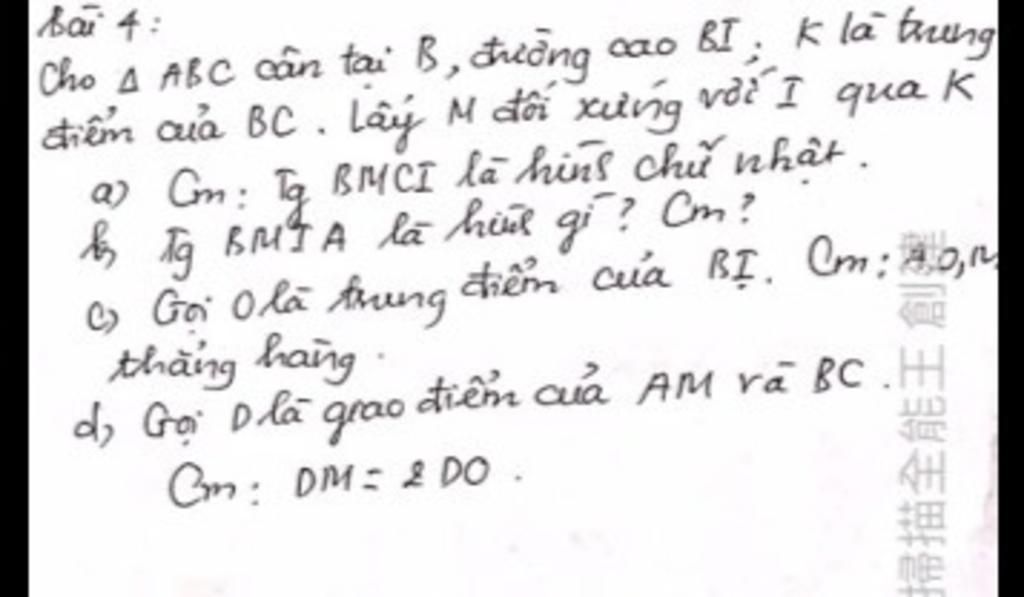 Bài 4:
Cho Δ ABC cân tại B, đường cao BI; K là trung
điểm của BC. Lấy M đối xứng với I qua K
a) Cm: Tg BMCI là hình chữ nhật.
b, Tg BMIA là hình gì? Cm?
c, Gọi O là trung điểm của BI. Cm: A,O,M
thẳng hàng.
d, Gọi D là giao điểm của AM và BC.
Cm: DM = 2 DO.
掃描全能王 創建